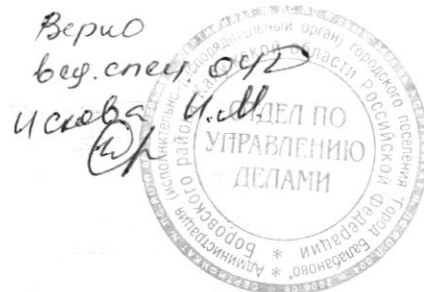 Верно
вед. спец. ОУД
И.М.
ОТДЕЛ ПО
УПРАВЛЕНИЮ
ДЕЛАМИ
Администрация (исполнительно-распорядительный орган) городского поселения "Город Балабаново"
Боровского района Калужской области Российской Федерации